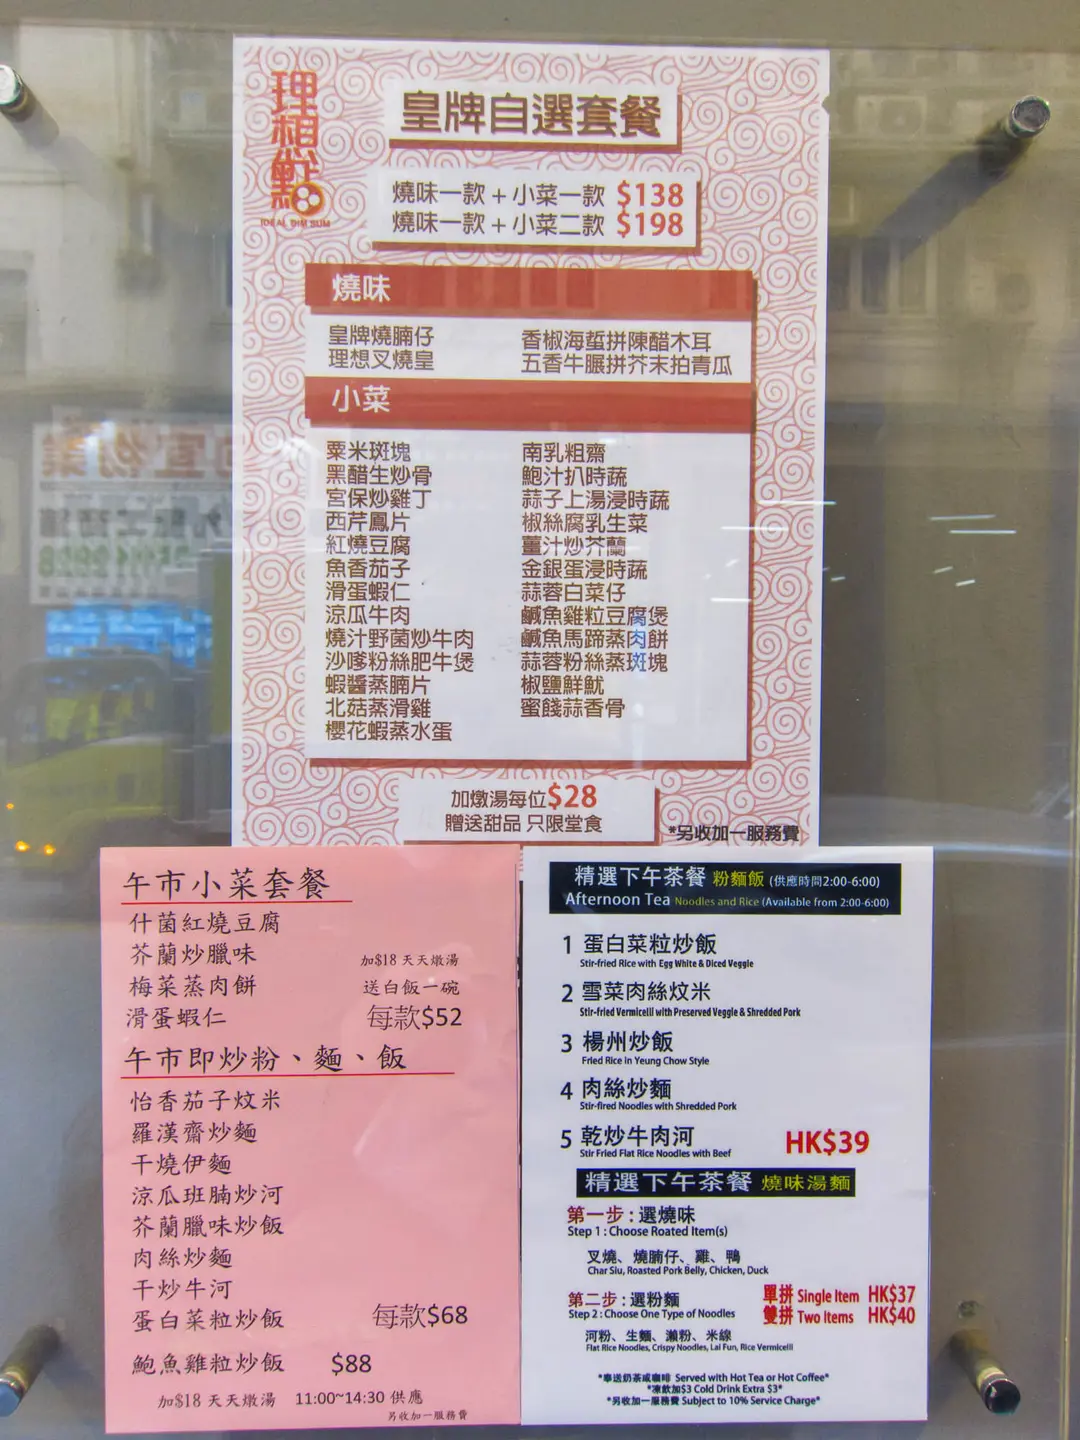 理想點
IDEAL DIM SUM
皇牌自選套餐
燒味一款 + 小菜一款 $138
燒味一款 + 小菜二款 $198
燒味
皇牌燒腩仔 香椒海蜇拼陳醋木耳
理想叉燒皇 五香牛𦟌拼芥末拍青瓜
小菜
粟米斑塊 南乳粗齋
黑醋生炒骨 鮑汁扒時蔬
宮保炒雞丁 蒜子上湯浸時蔬
西芹鳳片 椒絲腐乳生菜
紅燒豆腐 薑汁炒芥蘭
魚香茄子 金銀蛋浸時蔬
滑蛋蝦仁 蒜蓉白菜仔
涼瓜牛肉 鹹魚雞粒豆腐煲
燒汁野菌炒牛肉 鹹魚馬蹄蒸肉餅
沙嗲粉絲肥牛煲 蒜蓉粉絲蒸斑塊
蝦醬蒸腩片 椒鹽鮮魷
北菇蒸滑雞 蜜餞蒜香骨
櫻花蝦蒸水蛋
加燉湯每位$28
贈送甜品 只限堂食
*另收加一服務費
午市小菜套餐
什菌紅燒豆腐
芥蘭炒臘味 加$18 天天燉湯
梅菜蒸肉餅 送白飯一碗
滑蛋蝦仁 每款$52
午市即炒粉、麵、飯
怡香茄子炆米
羅漢齋炒麵
干燒伊麵
涼瓜班腩炒河
芥蘭臘味炒飯
肉絲炒麵
干炒牛河
蛋白菜粒炒飯 每款$68
鮑魚雞粒炒飯 $88
加$18 天天燉湯 11:00~14:30 供應
另收加一服務費
精選下午茶餐 粉麵飯 (供應時間2:00-6:00)
Afternoon Tea Noodles and Rice (Available from 2:00-6:00)
1 蛋白菜粒炒飯
Stir-fried Rice with Egg White & Diced Veggie
2 雪菜肉絲炆米
Stir-fried Vermicelli with Preserved Veggie & Shredded Pork
3 楊州炒飯
Fried Rice in Yeung Chow Style
4 肉絲炒麵
Stir-fired Noodles with Shredded Pork
5 乾炒牛肉河 HK$39
Stir Fried Flat Rice Noodles with Beef
精選下午茶餐 燒味湯麵
第一步 : 選燒味
Step 1 : Choose Roated Item(s)
叉燒、燒腩仔、雞、鴨
Char Siu, Roasted Pork Belly, Chicken, Duck
第二步 : 選粉麵 單拼 Single Item HK$37
Step 2 : Choose One Type of Noodles 雙拼 Two Items HK$40
河粉、生麵、瀨粉、米線
Flat Rice Noodles, Crispy Noodles, Lai Fun, Rice Vermicelli
*奉送奶茶或咖啡 Served with Hot Tea or Hot Coffee*
*凍飲加$3 Cold Drink Extra $3*
*另收加一服務費 Subject to 10% Service Charge*